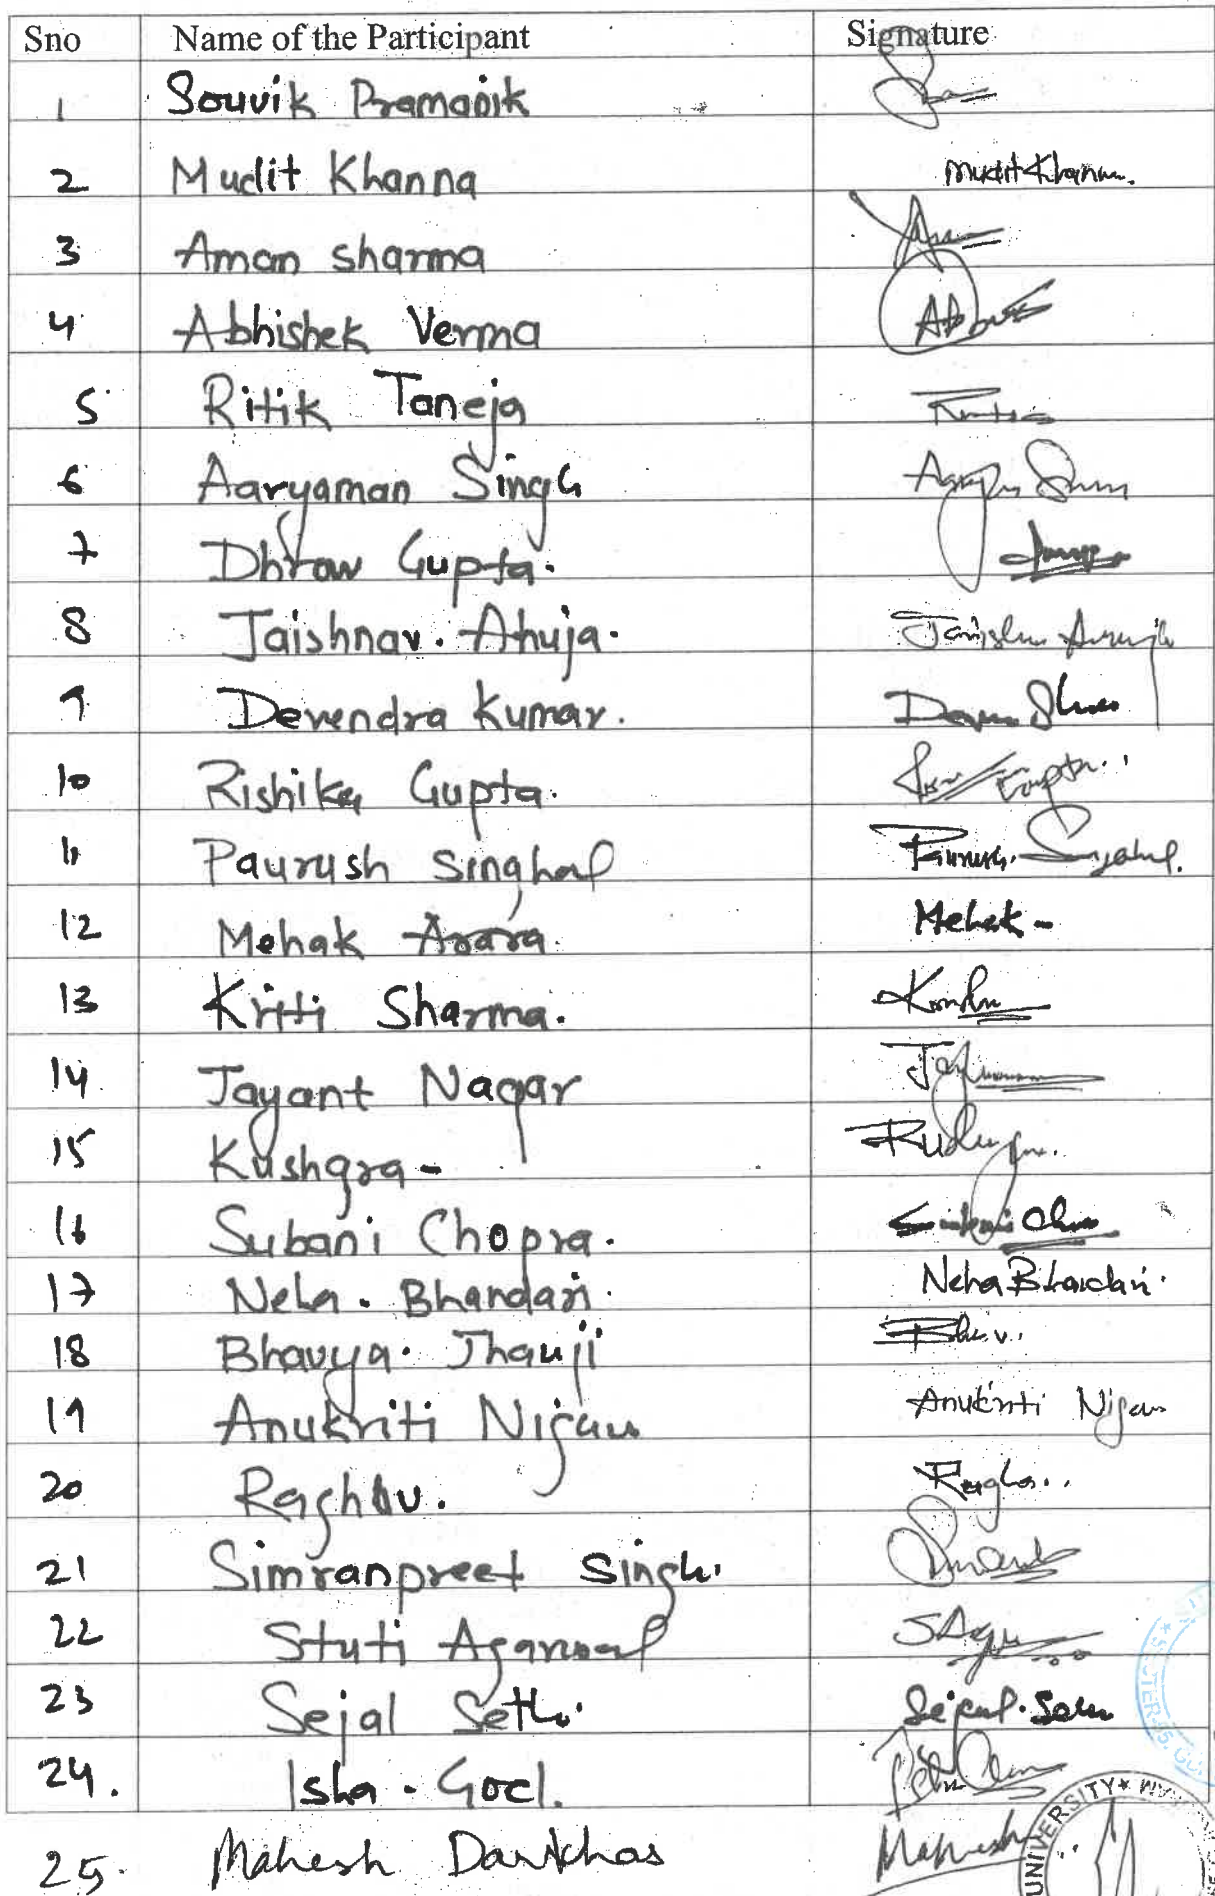 Sno Name of the Participant Signature
1 Souvik Pramanik
2 Mudit Khanna Mudit Khanna.
3 Aman sharma
4 Abhishek Verma
5 Ritik Taneja
6 Aaryaman Singh
7 Dhruv Gupta.
8 Jaishnav. Ahuja.
9 Devendra Kumar.
10 Rishika Gupta. Gupta..
11 Paurush Singhal
12 Mehak Arora. Mehak -
13 Kriti Sharma.
14 Jayant Nagar
15 Kushgra -
16 Subani Chopra.
17 Neha. Bhandari. Neha Bhandari.
18 Bhavya. Jhauji
19 Anukriti Nigam Anukriti Nigam
20 Raghav. Ragha..
21 Simranpreet Singh.
22 Stuti Agarwal
23 Sejal Sethi. Sejal.
24. Isha. Goel.
25. Mahesh Darkhas Mahesh
UNIVERSITY